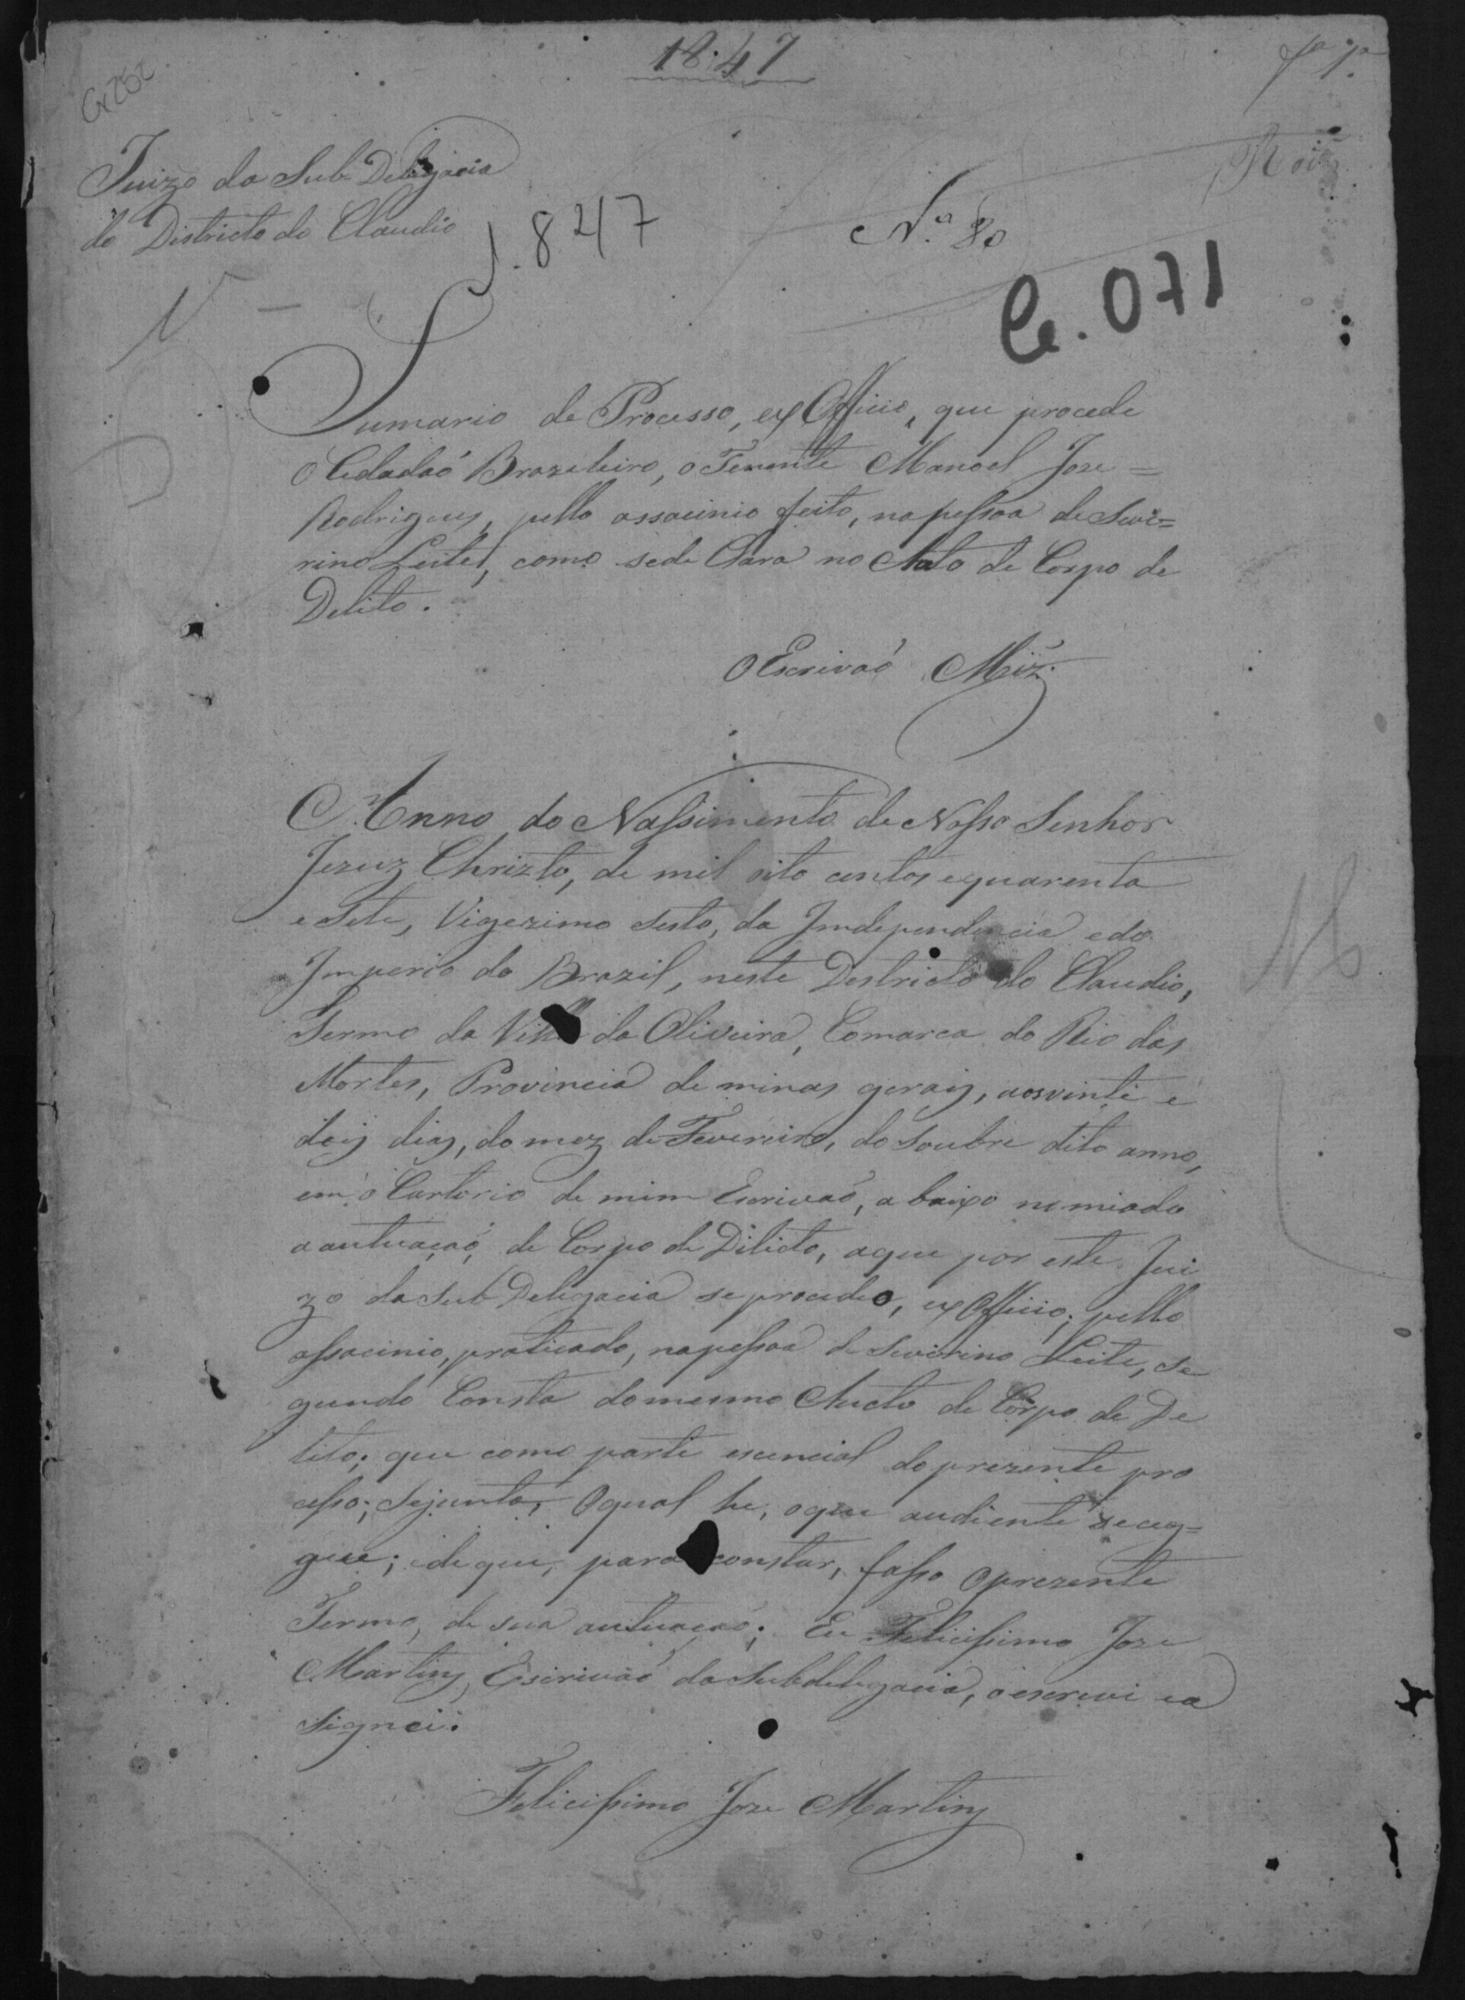 1847
fª 1ª
Cx 262
Juizo da Sub Delegacia
do Districto do Claudio
1.847
Nº 80
Ce. 071
Sumario de Processo, ex Officio, que procede
o Cidadaó Brazileiro, o Tenente Manoel Joze =
Rodrigues, pello assacinio feito, na peſsoa de Sevi=
rino Leite, como sede Clara no Auto de Corpo de
Delito.
O Escrivaó Miz.
Anno do Naſsimento de Noſso Senhor
Jezuz Chrizto, de mil oito centos e quarenta
e Sete, Vigezimo Sesto, da Imdependencia e do
Imperio do Brazil, neste Destricto do Claudio,
Termo da Villa da Oliveira, Comarca do Rio das
Mortes, Provincia de minas gerais, aos vinte e
dois dias, do mez de Fevereiro, do Soubre dito anno,
em o Cartorio de mim Escrivaó, a baixo nomiado
a autuaçaó de Corpo de Dilicto, aque por este Jui
zo da Sub Delegacia se procedeo, ex Officio; pello
aſsacinio, praticado, na peſsoa de Severino Leite, se
gundo Consta do mesmo Aucto de Corpo de De
lito; que como parte esencial do prezente pro
ceſso; Se junta, O qual he, o que audiente se ceg=
gue; e de que, para constar, faſso o prezente
Termo, de sua autuaçaó; Eu Feliciſsimo Joze
Martins, Escrivaó da Subdelegacia, o escrevi e a
Signei.
Feliciſsimo Joze Martins